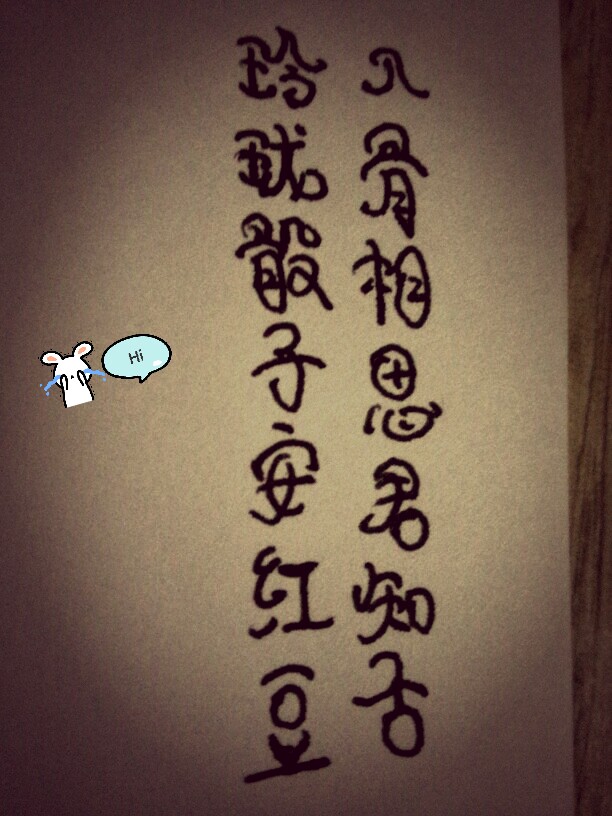 玲珑骰子安红豆
入骨相思君知否
Hi